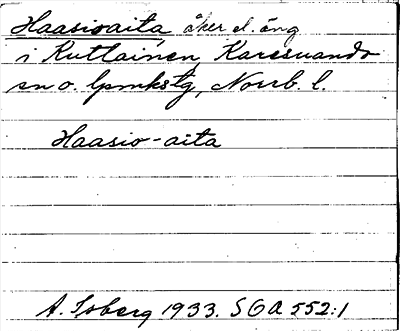 Haasioaita åker el. äng
i Kuttainen, Karesuando
sn o. lpmkstg, Norrb. l.
Haasio-aita
A. Isberg 1933. SOA 552:1